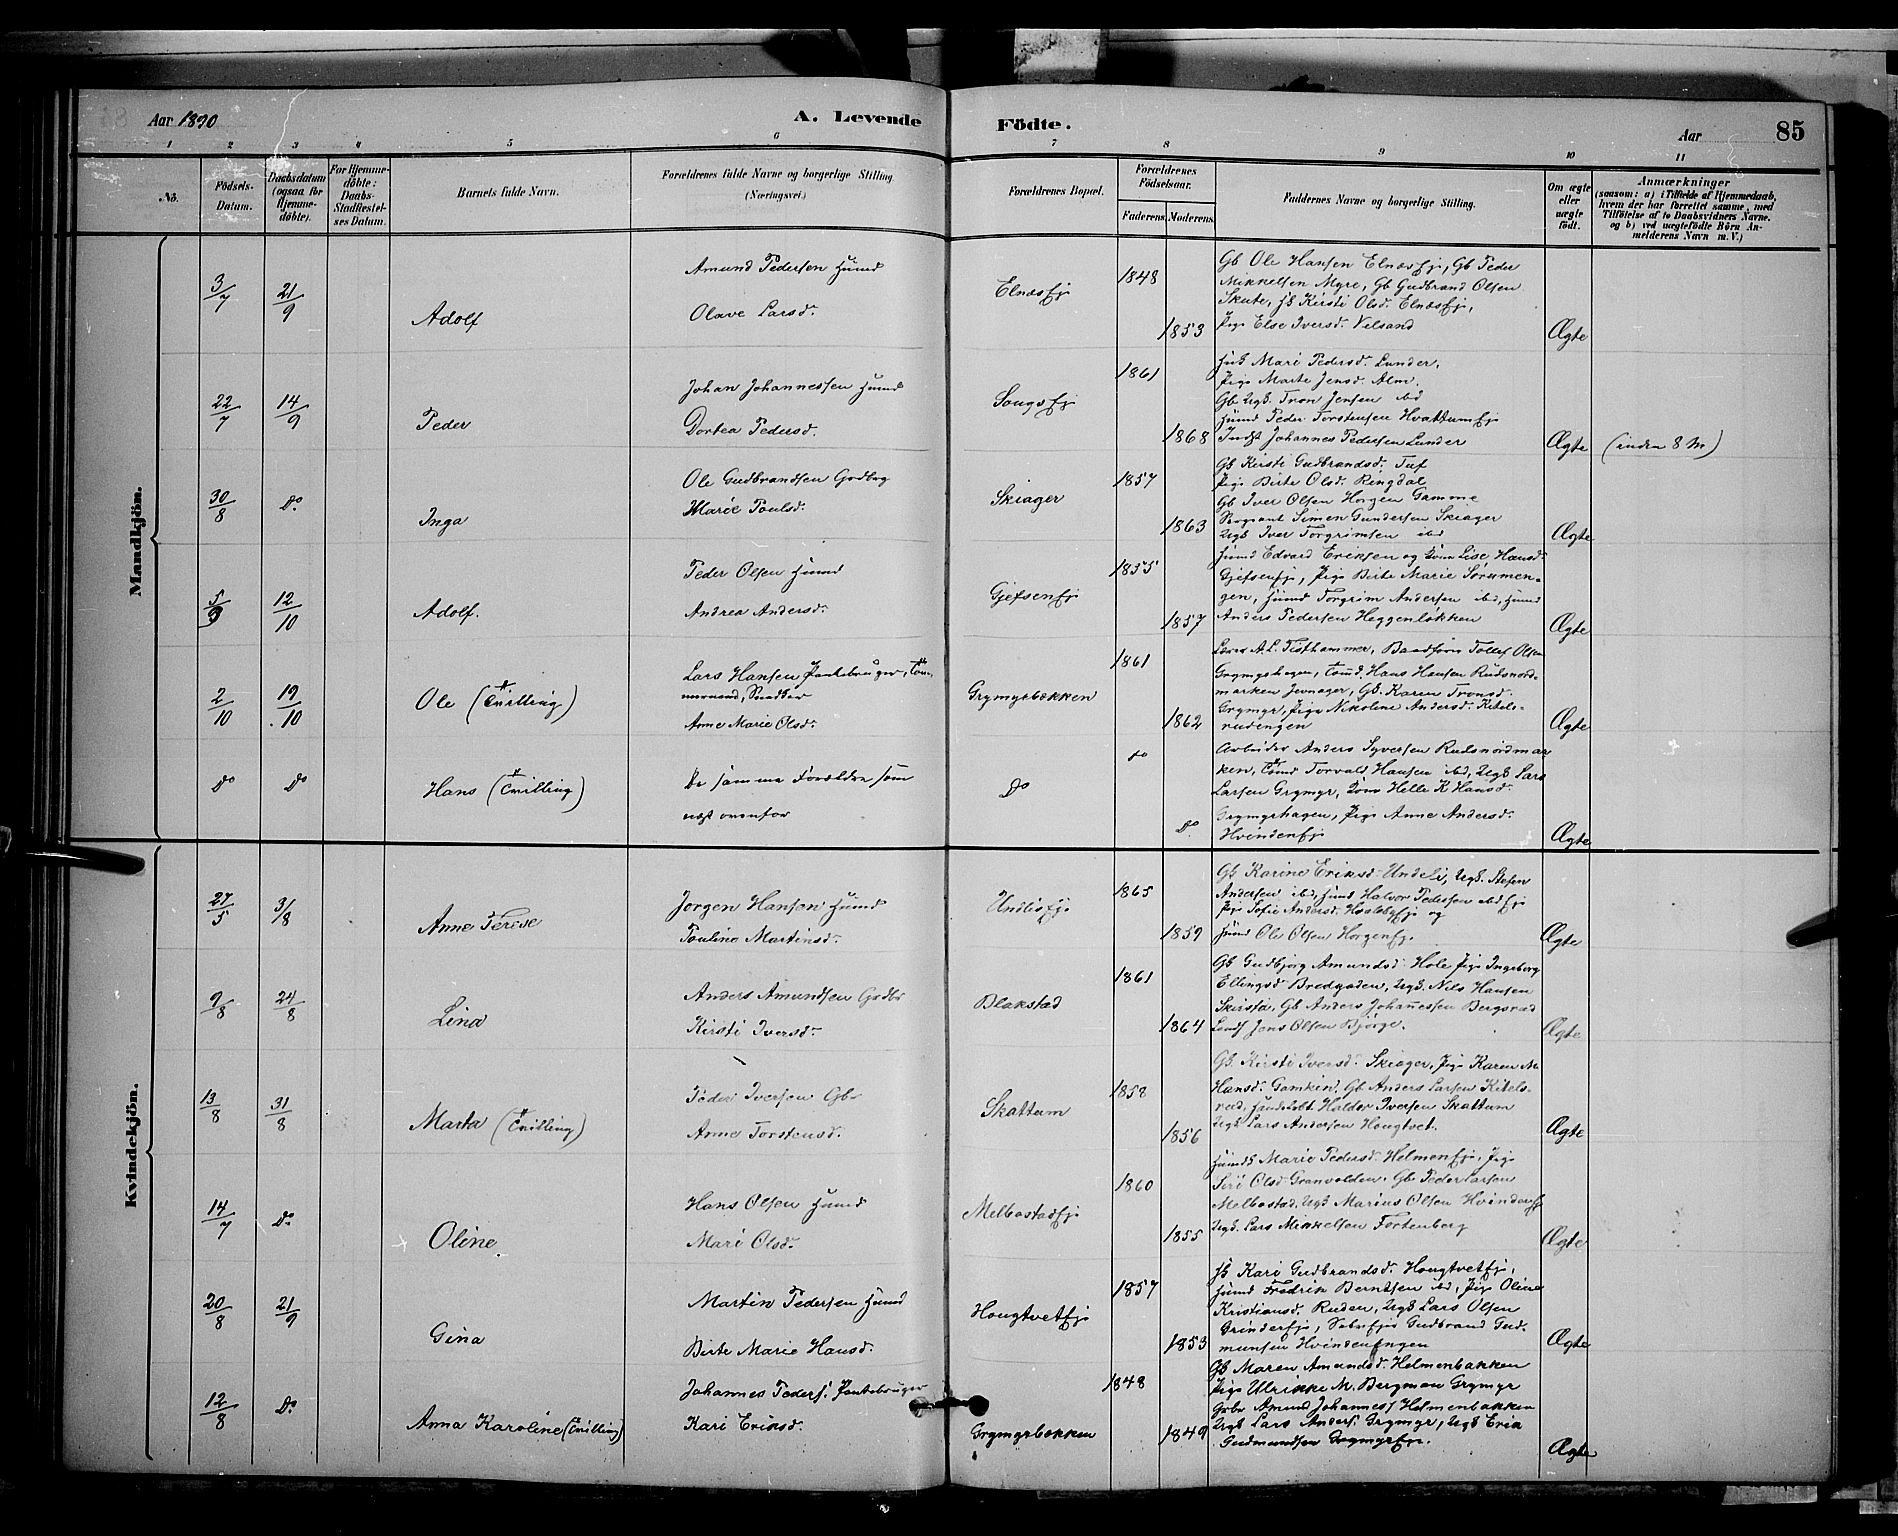 Aar 1890
A. Levende
Födte.
Aar
85
1 2 3 4 5 6 7 8 9 10 11
No.
Födsels-Datum.
Daabsdatum (ogsaa for Hjemme-döbte).
For Hjemme-döbte: Daabs-Stadfæstel-ses Datum.
Barnets fulde Navn.
Forældrenes fulde Navne og borgerlige Stilling.
(Næringsvei.)
Forældrenes Bopæl.
Forældrenes Födselsaar.
Faderens. Moderens.
Faddernes Navne og borgerlige Stilling.
Om ægte eller uægte födt.
Anmærkninger
(saasom: a) i Tilfælde af Hjemmedaab,
hvem der har forrettet samme, med
Tilföielse af to Daabsvidners Navne.
og b) ved uægtefödte Börn An-
melderens Navn m. V.)
Mandkjön.
3/7 21/9 Adolf
Amund Pedersen Husmd
Olave Larsd.
Elnæsej
1848
1853
Gb Ole Hansen Elnæsej, Gb Peder
Mikkelsen Myre, Gb Gudbrand Olsen
Skute, Hk Kirsti Olsd. Elnæsej,
Pige Else Iversd. Velsand
Ægte
22/7 14/9 Peder
Johan Johannessen Husmd
Dortea Pedersd.
Sougsej
1861
1868
Husk Mari Pedersd. Lunder,
Pige Marte Jensd. Alm.
Gb Ugk. Tron Jensen ibd
Husmd Peder Torstensen Hvattumej
Indst Johannes Pedersen Lunder
Ægte
(inden 8 M)
30/8 Do Inga
Ole Gudbrandsen Gbdbrg
Marie Poulsd.
Skiager
1857
1863
Gk Kirsti Gudbrandsd. Tuf
Pige Birte Olsd. Ringdal
Gb Iver Olsen Horgen Gamme
Sergeant Simen Gundersen Skiager
Ugk Iver Torgrimsen ibd
Ægte
5/9 12/10 Adolf.
Peder Olsen Husmd
Andrea Andersd.
Gjefsenej
1855
1857
Husmd Edvard Eriksen og Kone Lise Hansd.
Gjefsenej, Pige Birte Marie Sörumen-
gen, Husmd Torgrim Andersen ibd, Husmd
Anders Pedersen Heggenløkken
Ægte
2/10 19/10 Ole (Tvilling)
Lars Hansen Partebruger, Töm-
mermand, Snedker
Anne Marie Olsd.
Grymyrbækken
1861
1862
Lærer A.L. Tisthammer, Baadförer Tollef Olsen
Grymyrhagen, Tömd. Hans Hansen Rudsnord-
marken Jevnager, Gk. Karen Tronsd.
Grymyr, Pige Nikoline Andersd. Kitels-
rudengen
Ægte
Do Do Hans (Tvilling)
De samme Forældre som
næst ovenfor
Do
Do
Do
Arbeider Anders Syversen Rudsnordmar
ken, Tömd Torvald Hansen ibd, Ugk Lars
Larsen Grymyr, Kone Helle K Hansd.
Grymyrhagen, Pige Anne Andersd.
Hvindenej
Ægte
Kvindekjön.
27/5 3/8 Anne Terese
Jorgen Hansen Husmd
Pouline Martinsd.
Undliej
1865
1859
Gk Karine Eriksd Undeli, Ugk. Stefen
Andersen ibd, Husmd Halvor Pedersen ibd ej
Pige Sofie Andersd. Hvalebyej og
Husmd Ole Olsen Horgenej.
Ægte
9/8 24/8 Lina
Anders Amundsen Gbdbr
Kirsti Iversd.
Blakstad
1861
1864
Gk Gudbjörg Amundsd. Hole Pige Ingeborg
Ellingsd Bredgaden, Ugk. Nils Hansen
Skirstad, Gb Anders Johanessen Bergsrud
Landh Jens Olsen Bjørge.
Ægte
13/8 31/8 Marta (Tvilling)
Peder Iversen Gbr
Anne Torstensd.
Skattum
1858
1856
Gk. Kirsti Iversd. Skiager, Pige Karen M
Hansd. Gamkin, Gb Anders Larsen Kitels-
rud, Haldor Iversen Skattum
Ugk Lars Andersen Hougtvet.
Ægte
14/7 Do Oline
Hans Olsen Husmd
Mari Olsd.
Melbostadej
1860
1855
Husmdk Marie Pedersd. Helmenej, Pige
Siri Olsd Granvolden. Gb Peder Larsen
Melbostad, Ugk Marius Olsen Hvindenej
Ugk. Lars Mikkelsen Tortenberg
Ægte
20/8 21/9 Gina
Martin Pedersen Husmd
Birte Marie Hansd.
Hougtvetej
1857
1853
Hk Kari Gudbrandsd. Hougtvetej,
Husmd Fredrik Berntsen ibd, Pige Oline
Kristiansd. Ruden, Ugk Lars Olsen
Grinderej, Gudbrand Gud-
munsen Hvindenengen
Ægte
12/8 Do Anna Karoline (Tvilling)
Johannes Peders. Partebruger
Kari Eriksd.
Grymyrbækken
1848
1849
Gk Maren Amundsd. Helmenbakken
Pige Ulrikke M. Bergman Grymyr
Grbr Amund Johannes Helmenbakken
Ugk Lars Anders. Grymyr, Ugk Erik
Gudmundsen Grymyrej.
Ægte